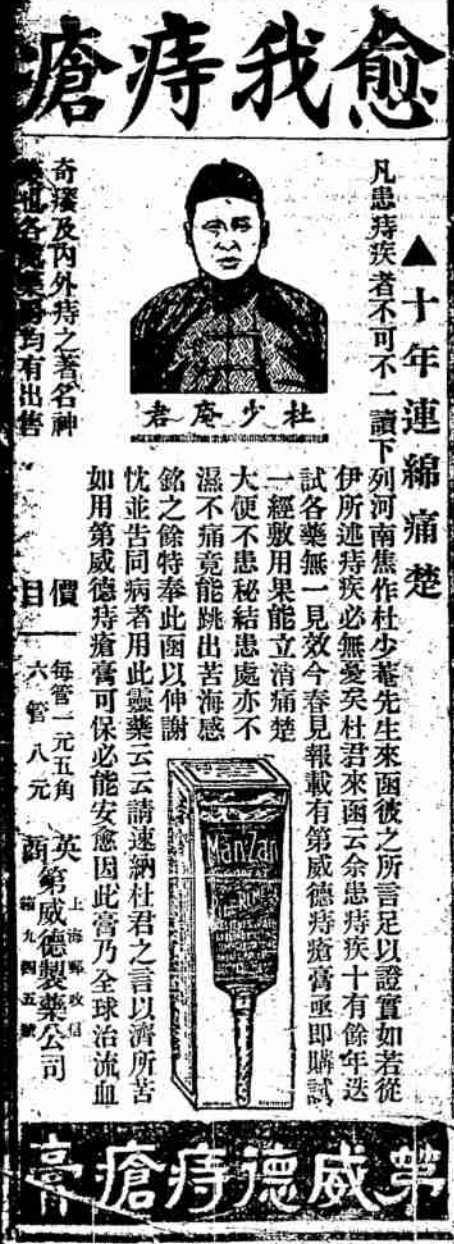 愈我痔瘡
▲十年連綿痛楚
凡患痔疾者不可不一讀下列河南焦作杜少菴先生來函彼之所言足以證實如若從
伊所述痔疾必無憂矣杜君來函云余患痔疾十有餘年迭
試各藥無一見效今春見報載有第威德痔瘡膏亟即購試
一經敷用果能立消痛楚
大便不患秘結患處亦不
濕不痛竟能跳出苦海感
銘之餘特奉此函以伸謝
忱並告同病者用此靈藥云云請速納杜君之言以濟所苦
如用第威德痔瘡膏可保必能安愈因此膏乃全球治流血
奇癢及內外痔之著名神
也各均有出售
杜少庵君
ManZan
價目
每管一元五角
六管八元
英商第威德製藥公司
上海郵政信
箱九四五號
第威德痔瘡膏